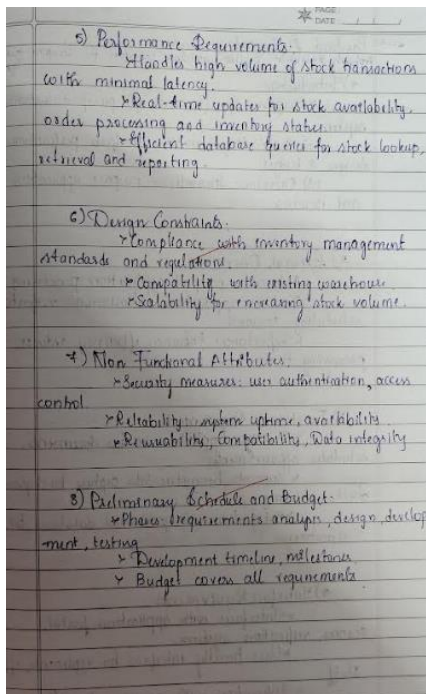 PAGE:
DATE
5) Performance Requirements.
→Handles high volume of stock transactions
with minimal latency.
→Real-time updates for stock availability,
order processing and inventory status.
→Efficient database queries for stock lookup,
retrieval and reporting.
6) Design Constraints.
→Compliance with inventory management
standards and regulations.
→Compatibility with existing warehouse.
→Scalability for increasing stock volume.
7) Non Functional Attributes:
→Security measures: user authentication, access
control
→Reliability: system uptime, availability.
→Reusability, Compatibility, Data integrity
8) Preliminary Schedule and Budget.
→Phases: requirements analysis, design, develop
-ment, testing
→ Development timeline, milestones
→ Budget covers all requirements.